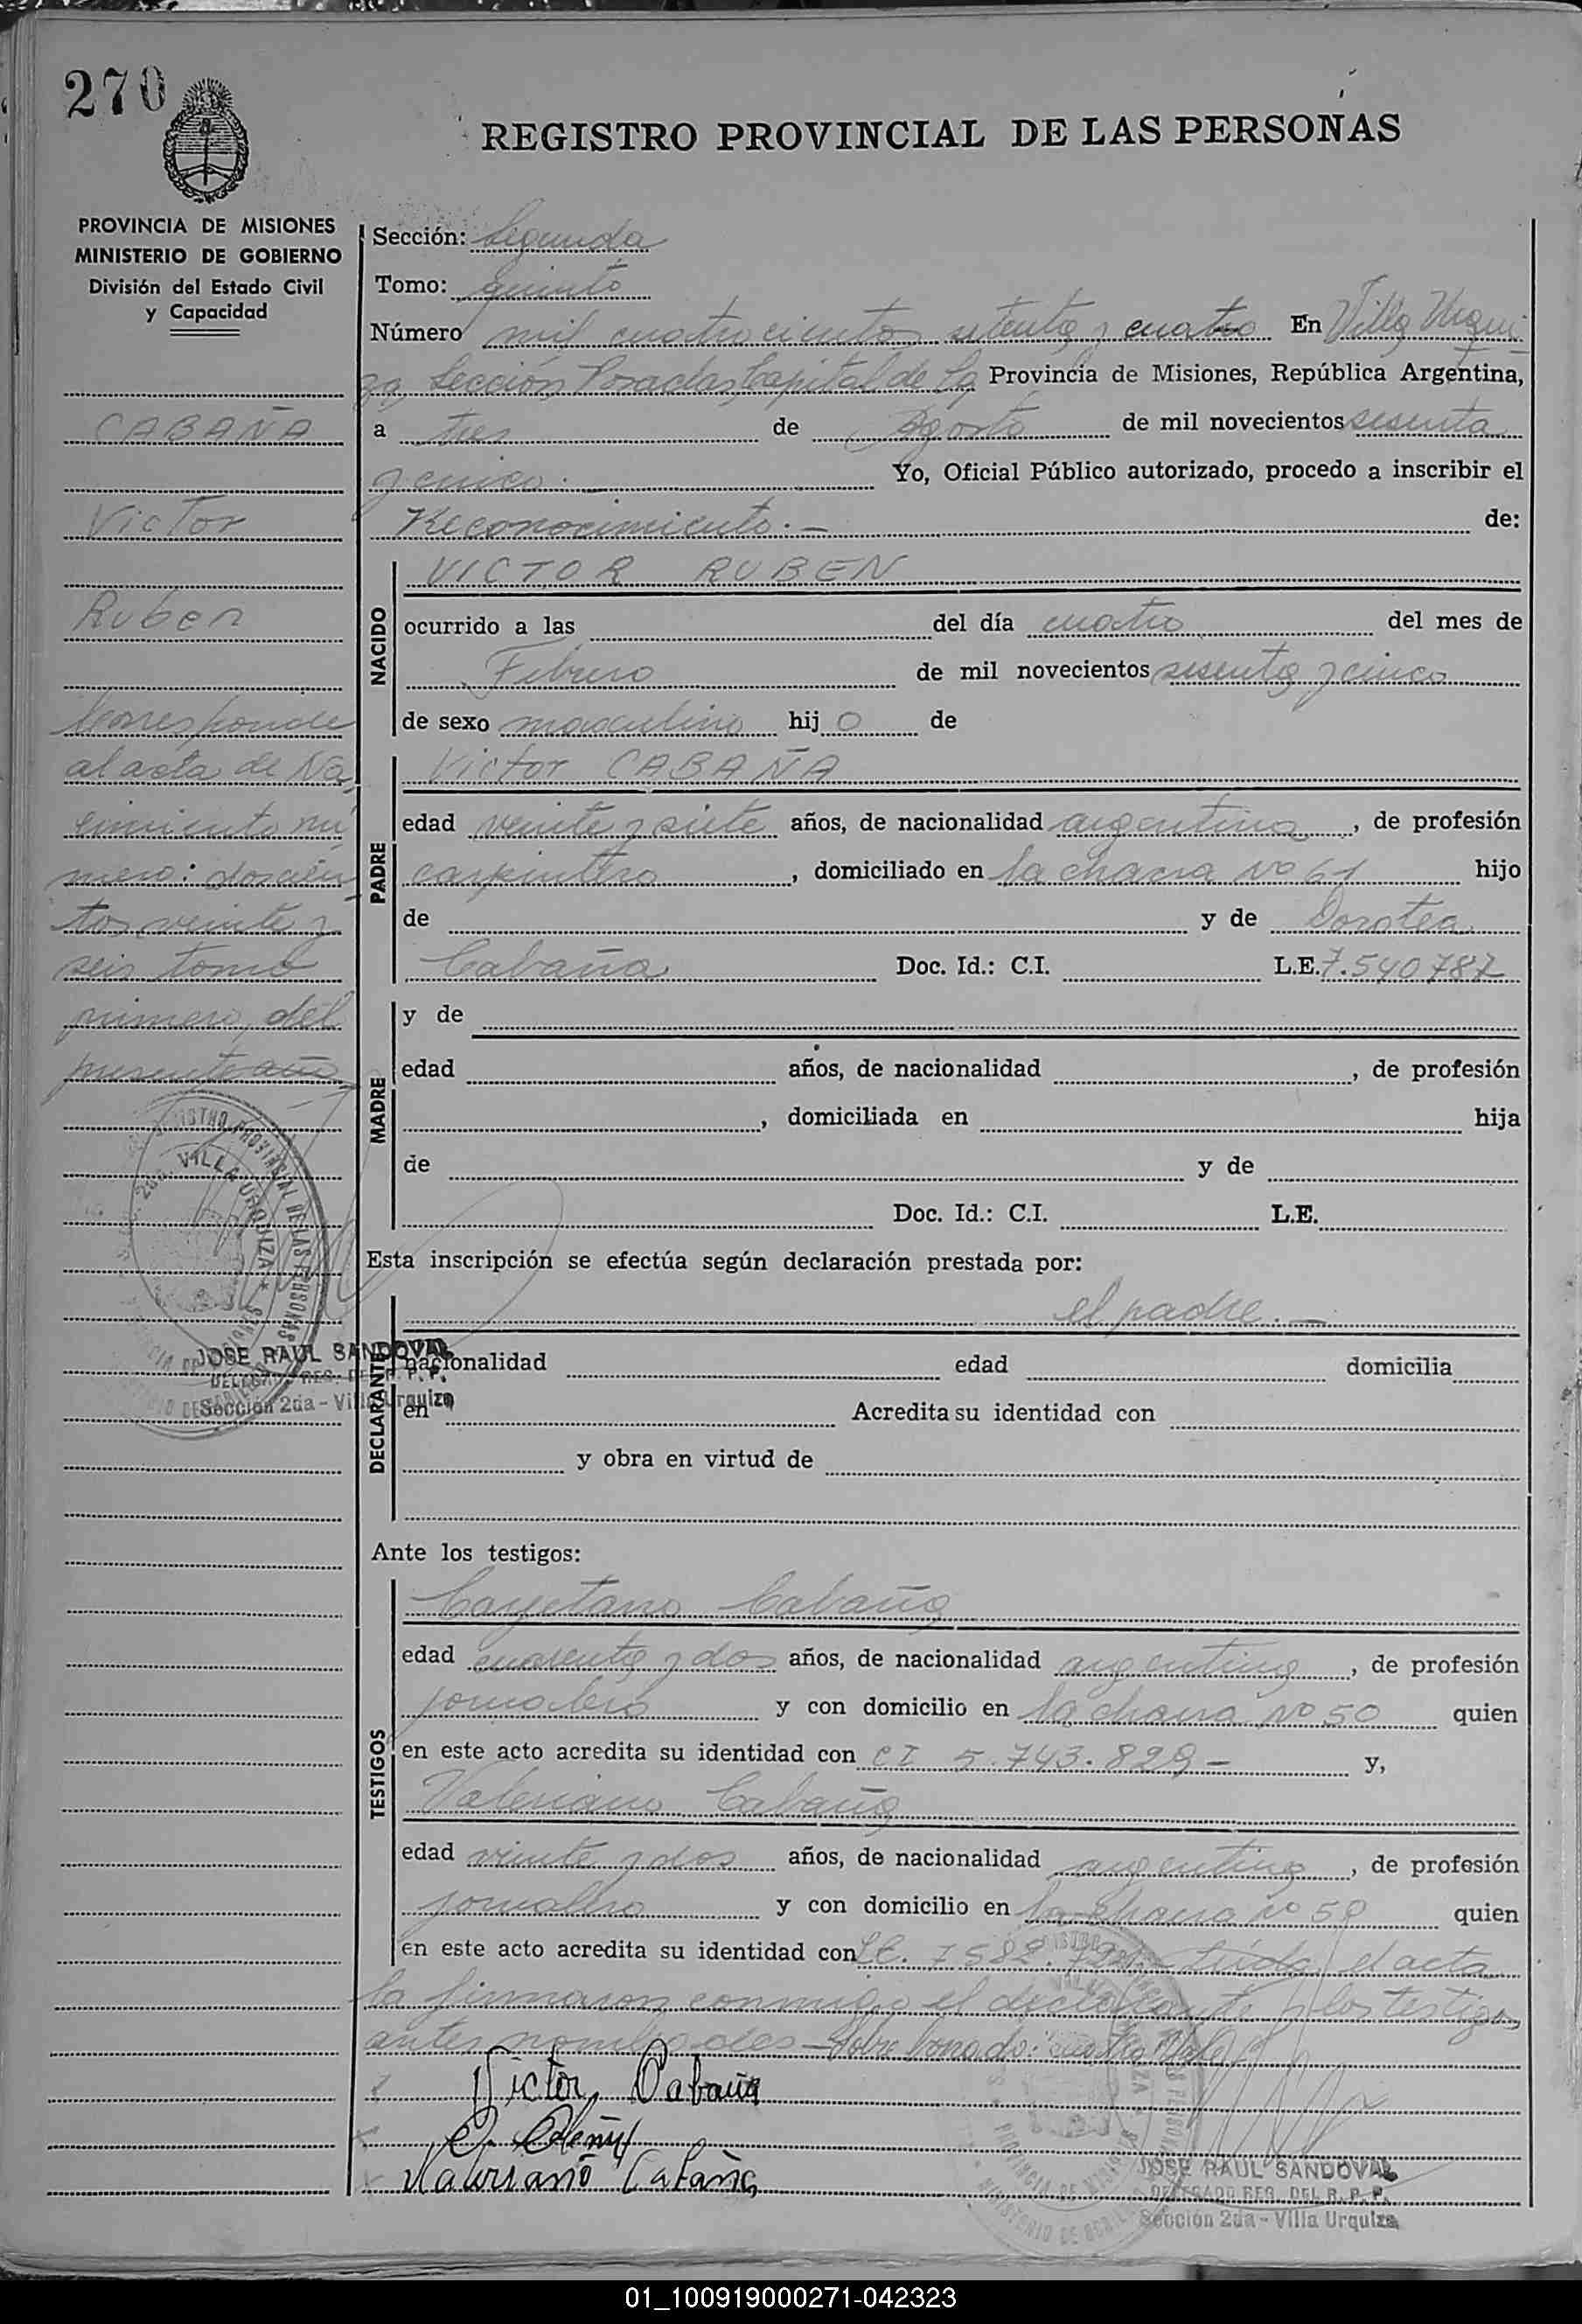 270
REGISTRO PROVINCIAL DE LAS PERSONAS
PROVINCIA DE MISIONES
MINISTERIO DE GOBIERNO
División del Estado Civil
y Capacidad
CABAÑA
Victor
Ruben
Corresponde
al acta de Na-
cimiento nú
mero: doscien-
tos veinte y
seis tomo
primero, del
presente año
REGISTRO PROVINCIAL DE LAS PERSONAS
VILLA URQUIZA
JOSE RAUL SANDOVAL
DELEGADO REG. DEL R. P. P.
Sección 2da - Villa Urquiza
Sección: Segunda
Tomo: quinto
Número mil cuatrocientos setenta y cuatro En Villa Urqui-
za, Sección Posadas, Capital de la Provincia de Misiones, República Argentina,
a tres de Agosto de mil novecientos sesenta
y cinco.- Yo, Oficial Público autorizado, procedo a inscribir el
Reconocimiento.- de:
NACIDO
VICTOR RUBEN
ocurrido a las del día cuatro del mes de
Febrero de mil novecientos sesenta y cinco
de sexo masculino hijo de
PADRE
Victor CABAÑA
edad veinte y siete años, de nacionalidad argentina, de profesión
carpintero, domiciliado en la chacra Nº 61 hijo
de y de Dorotea
Cabaña Doc. Id.: C.I. L.E. 7.540787
MADRE
y de
edad años, de nacionalidad , de profesión
, domiciliada en hija
de y de
Doc. Id.: C.I. L.E.
Esta inscripción se efectúa según declaración prestada por:
DECLARANTE
el padre.-
nacionalidad edad domicilia
en Acredita su identidad con
y obra en virtud de
Ante los testigos:
TESTIGOS
Cayetano Cabaña
edad cuarenta y dos años, de nacionalidad argentina, de profesión
jornalero y con domicilio en la chacra Nº 50 quien
en este acto acredita su identidad con C I 5.743.829- y,
Valeriano Cabaña
edad veinte y dos años, de nacionalidad argentina, de profesión
jornalero y con domicilio en la chacra nº 50 quien
en este acto acredita su identidad con L.E. leída el acta
la firmaron conmigo el declarante y los testigos
antes nombrados - Sobre borrado: cuatro Vale
Victor Cabaña
C. Cabaña
Valeriano Cabaña
JOSE RAUL SANDOVAL
DELEGADO REG. DEL R. P. P.
Sección 2da - Villa Urquiza
01_100919000271-042323